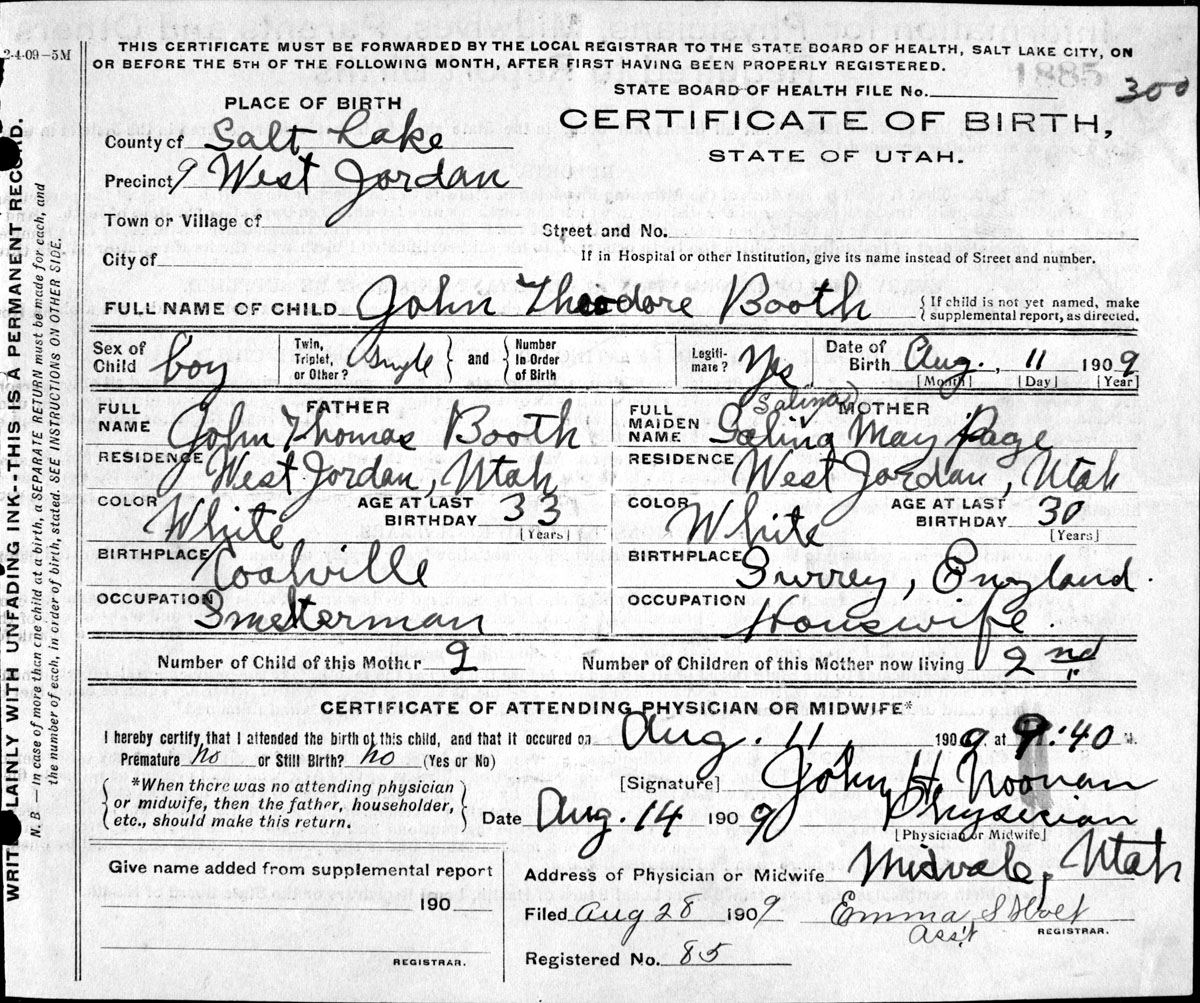 2-4-09-5M
THIS CERTIFICATE MUST BE FORWARDED BY THE LOCAL REGISTRAR TO THE STATE BOARD OF HEALTH, SALT LAKE CITY, ON
OR BEFORE THE 5TH OF THE FOLLOWING MONTH, AFTER FIRST HAVING BEEN PROPERLY REGISTERED.
STATE BOARD OF HEALTH FILE No. 300
PLACE OF BIRTH
CERTIFICATE OF BIRTH,
STATE OF UTAH.
County of Salt Lake
Precinct 9 West Jordan
Town or Village of
Street and No.
City of
If in Hospital or other Institution, give its name instead of Street and number.
FULL NAME OF CHILD John Theodore Booth
{ If child is not yet named, make
supplemental report, as directed.
Sex of Child boy
Twin, Triplet, or Other? Single } and { Number In Order of Birth
Legitimate? Yes
Date of Birth Aug. 11 1909
[Month] [Day] [Year]
FATHER
FULL NAME John Thomas Booth
RESIDENCE West Jordan, Utah
COLOR White
AGE AT LAST BIRTHDAY 33
[Years]
BIRTHPLACE Coalville
OCCUPATION Smelterman
MOTHER
Salina
FULL MAIDEN NAME Salina May Page
RESIDENCE West Jordan, Utah
COLOR White
AGE AT LAST BIRTHDAY 30
[Years]
BIRTHPLACE Surrey, England.
OCCUPATION Houswife
Number of Child of this Mother 2
Number of Children of this Mother now living 2nd
CERTIFICATE OF ATTENDING PHYSICIAN OR MIDWIFE*
I hereby certify that I attended the birth of this child, and that it occured on Aug. 11 1909, at 9:40
Premature no or Still Birth? no (Yes or No)
[Signature] John H. Noonan
*When there was no attending physician
or midwife, then the father, householder,
etc., should make this return.
Date Aug. 14 1909
Physician
[Physician or Midwife]
Address of Physician or Midwife Midvale, Utah
Give name added from supplemental report
190
REGISTRAR.
Filed Aug 28 1909
Emma S Holt
Asst
REGISTRAR.
Registered No. 85
WRITE PLAINLY WITH UNFADING INK--THIS IS A PERMANENT RECORD.
N. B.—In case of more than one child at a birth, a SEPARATE RETURN must be made for each, and
the number of each, in order of birth, stated. SEE INSTRUCTIONS ON OTHER SIDE.